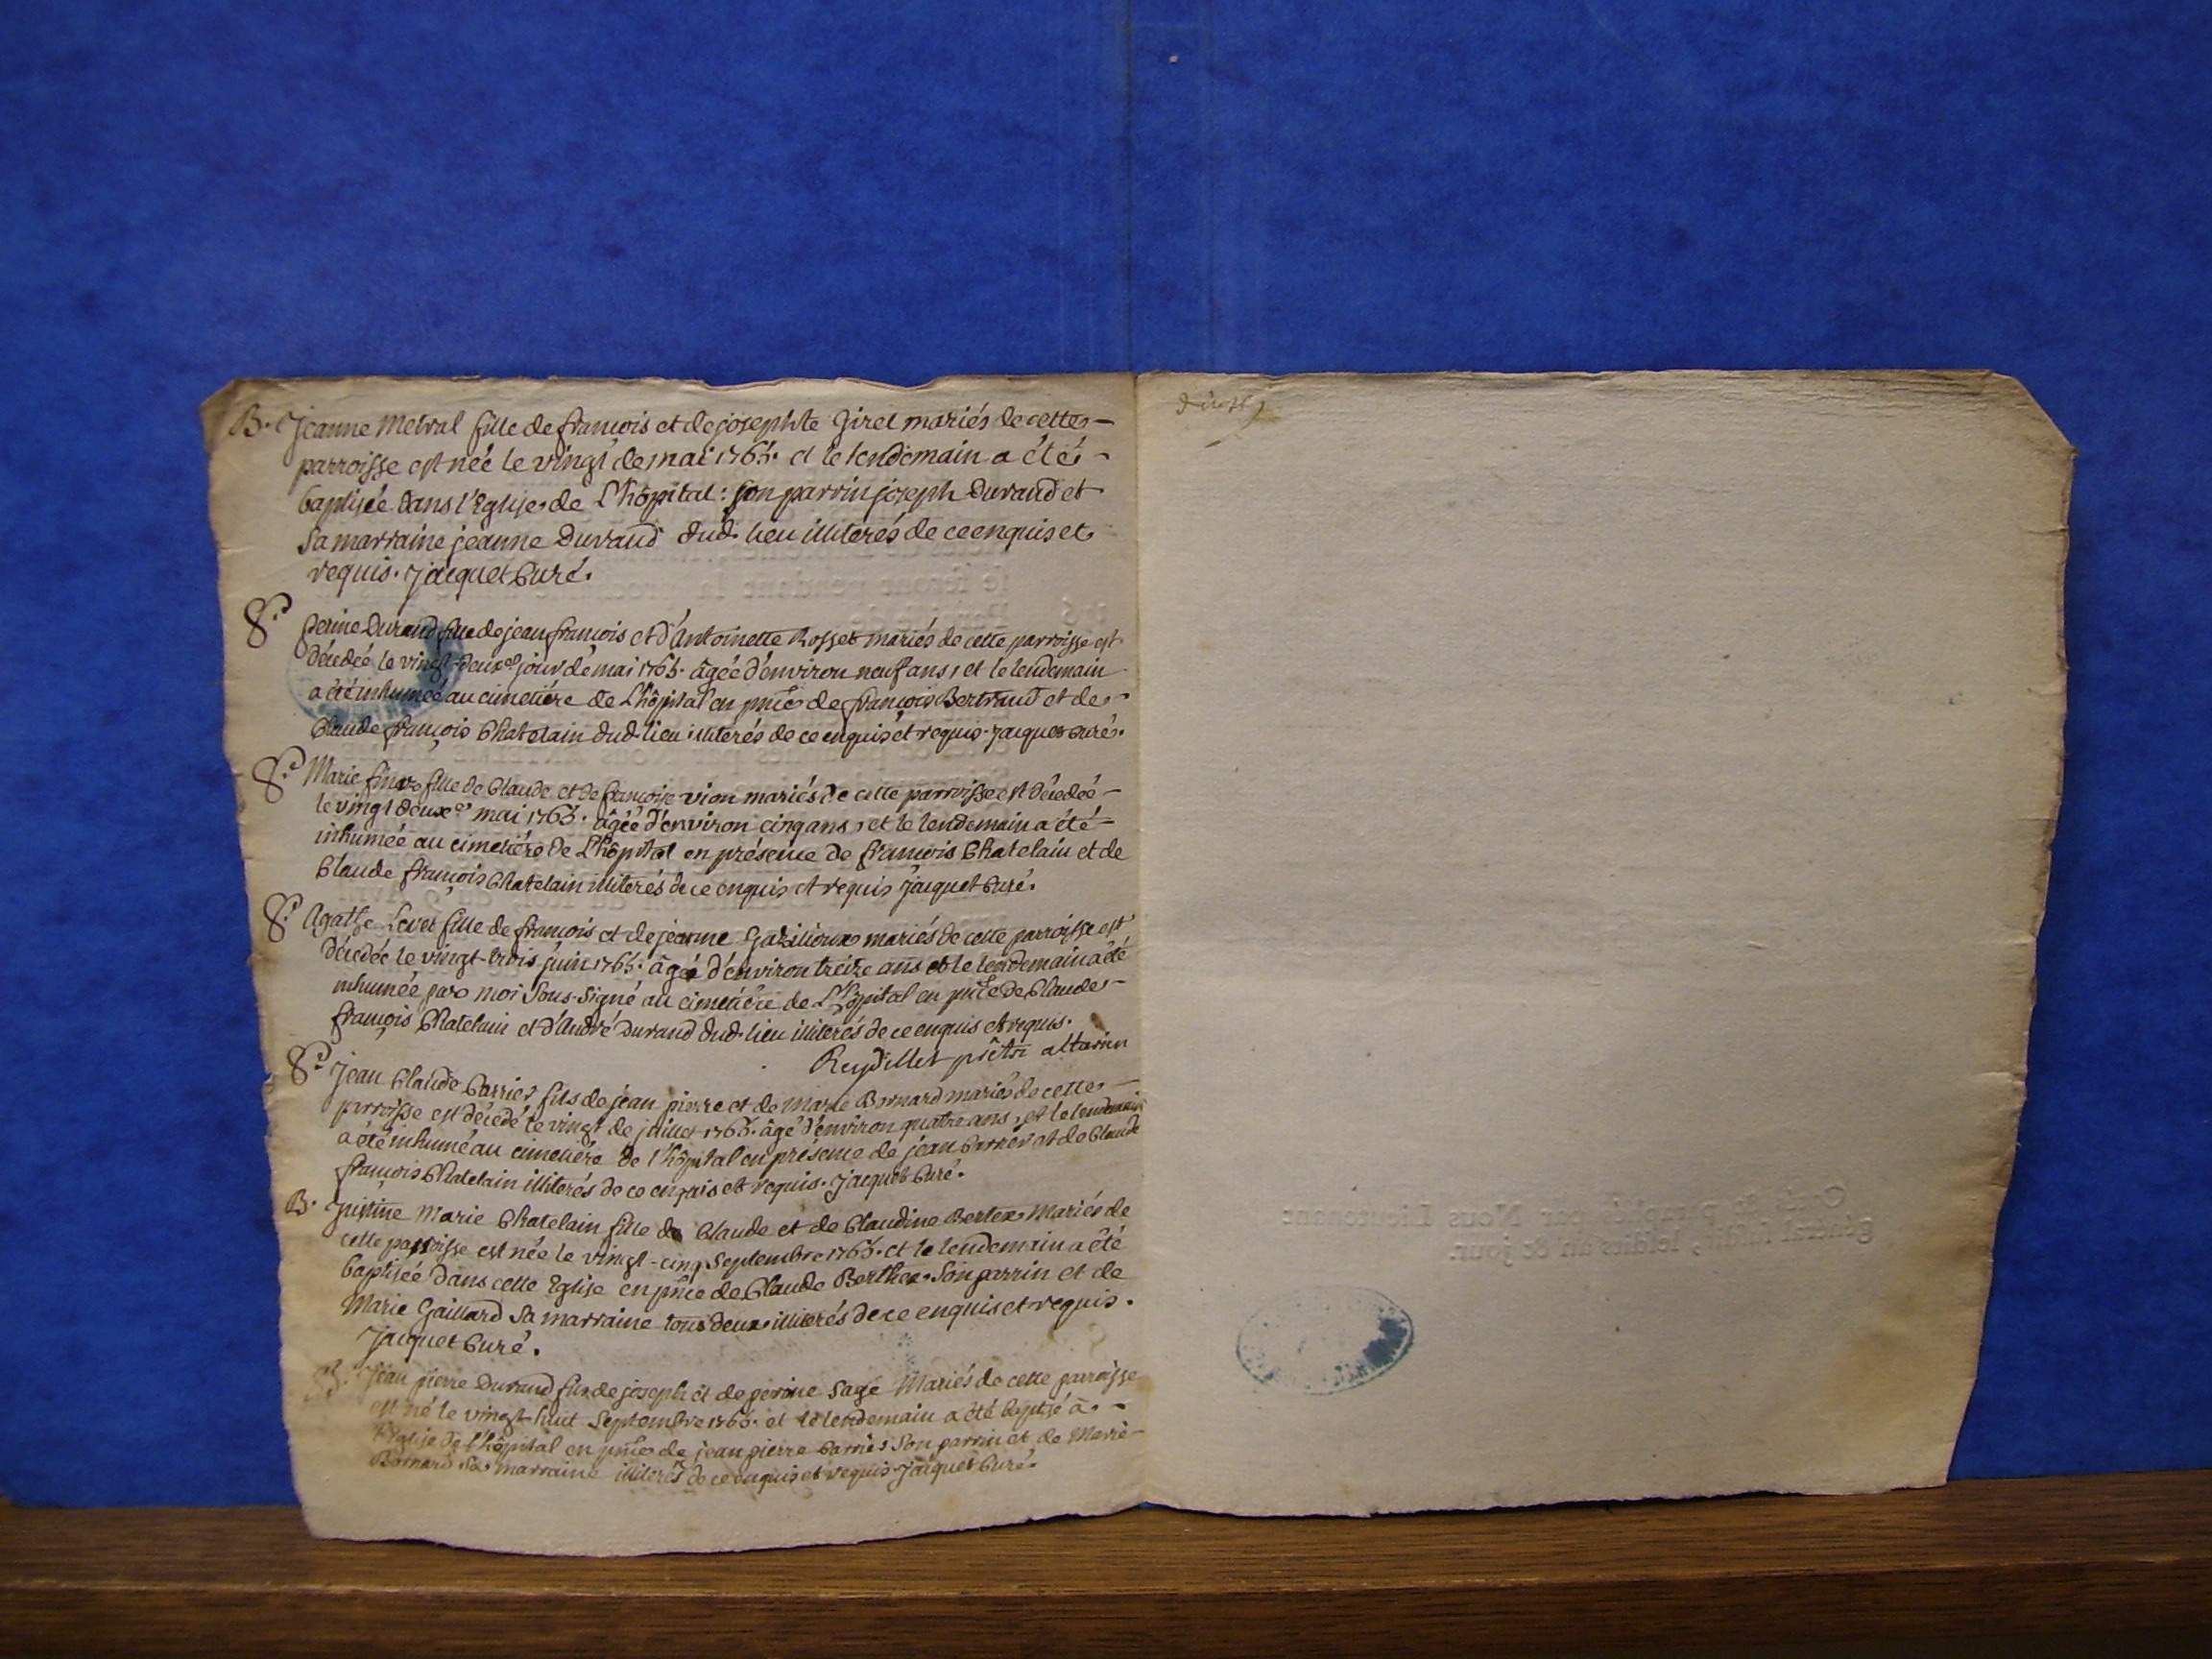 B. Jeanne Metral fille de francois et de josephte Giret mariés de cette
parroisse est née le vingt de mai 1765. et le lendemain a été
baptisée dans l'Eglise de L'hôpital: son parrin joseph Durand et
Sa marraine jeanne Durand dud. lieu illiterés de ce enquis et
requis. Jacquet Curé.
Sre perine Durand fille de jean francois et d'Antoinette Rosset mariés de cette parroisse est
décédée le vingt-deuxe jour de mai 1765. âgée d'environ neuf ans, et le lendemain
a été inhumée au cimetière de L'hôpital en pnce de françois Bertrand et de
Claude françois Chatelain dud. lieu illiterés de ce enquis et requis. Jacquet Curé.
Sre Marie fille de Claude et de francoise vion mariés de cette parroisse est décédée
le vingt deuxe mai 1765. âgée d'environ cinq ans, et le lendemain a été
inhumée au cimetière de L'hôpital en présence de francois Chatelain et de
Claude francois Chatelain illiterés de ce enquis et requis Jacquet Curé.
Sre Agathe Levet fille de francois et de jeanne mariés de cette parroisse est
décédée le vingt-trois juin 1765. âgée d'environ treize ans et le lendemain a été
inhumée par moi Sous-signé au cimetière de L'hôpital en pnce de Claude
françois Chatelain et d'André Durand dud. lieu illiterés de ce enquis et requis.
Reydellet prêtre altarien
Sre Jean Claude Carrier fils de jean pierre et de Marie Bornard mariés de cette
parroisse est décédé le vingt de juillet 1765. âgé d'environ quatre ans, et le lendemain
a été inhumé au cimetière de l'hôpital en présence de jean Carrier et de Claude
françois Chatelain illiterés de ce enquis et requis. Jacquet Curé.
B. Marie Chatelain fille de Claude et de Claudine Bertet Mariés de
cette parroisse est née le vingt-cinq Septembre 1765. et le lendemain a été
baptisée dans cette Eglise en pnce de Claude Berthet Son parrin et de
Marie Gaillard Sa marraine tous deux illiterés de ce enquis et requis.
Jacquet Curé.
B. Jean pierre Durand fils de joseph et de perine Sage Mariés de cette parroisse
est né le vingt-huit Septembre 1765. et le lendemain a été baptisé à
l'Eglise de l'hôpital en pnce de jean pierre Carrier Son parrin et de Marie
Bornard Sa marraine illiterés de ce enquis et requis. Jacquet Curé.